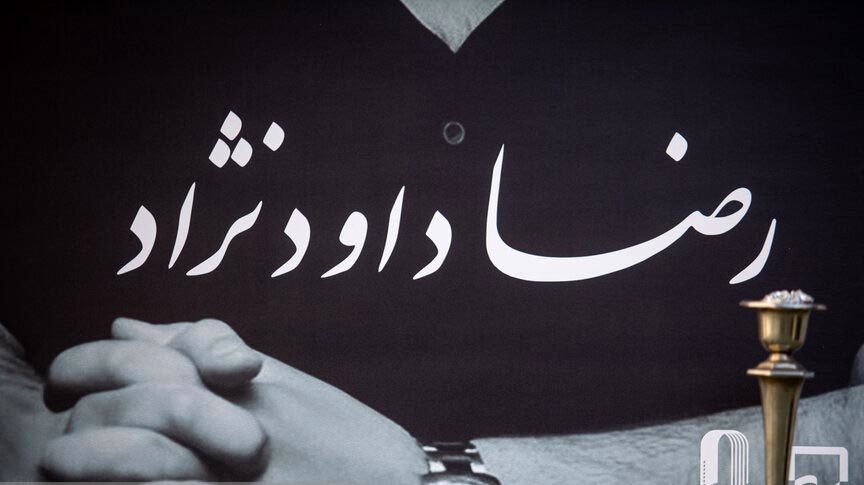 رضا داودنژاد